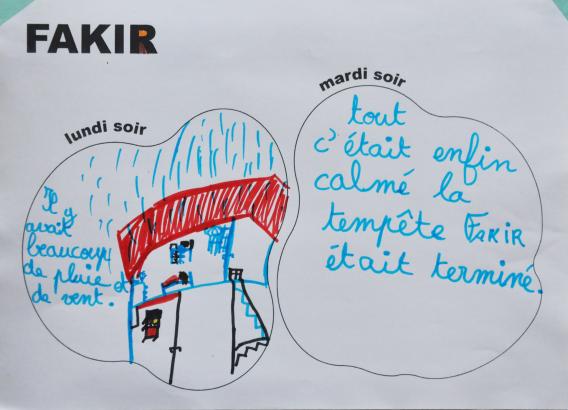 FAKIR
lundi soir
Il y
avait
beaucoup
de pluie et
de vent.
mardi soir
tout
c'était enfin
calmé la
tempête FAKIR
était terminé.